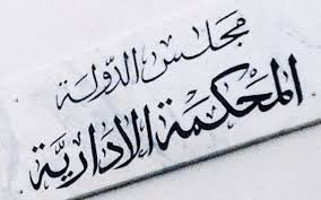 مجلس الدولة
المحكمة الادارية